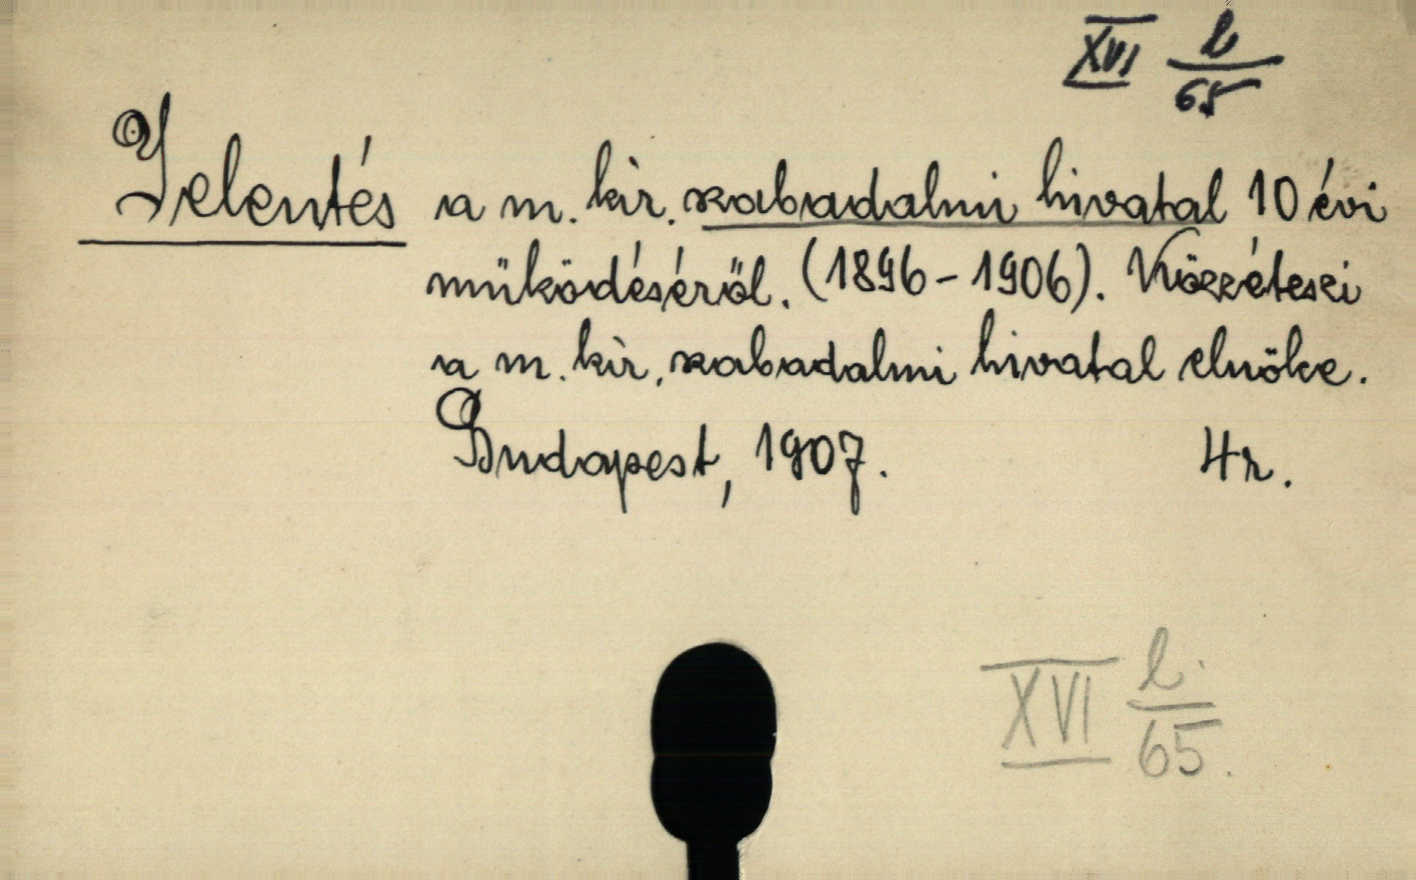 XVI b/65
Jelentés a m. kir. szabadalmi hivatal 10 évi
működéséről. (1896-1906). Közzéteszi
a m. kir. szabadalmi hivatal elnöke.
Budapest, 1907. 4r.
XVI b. / 65.